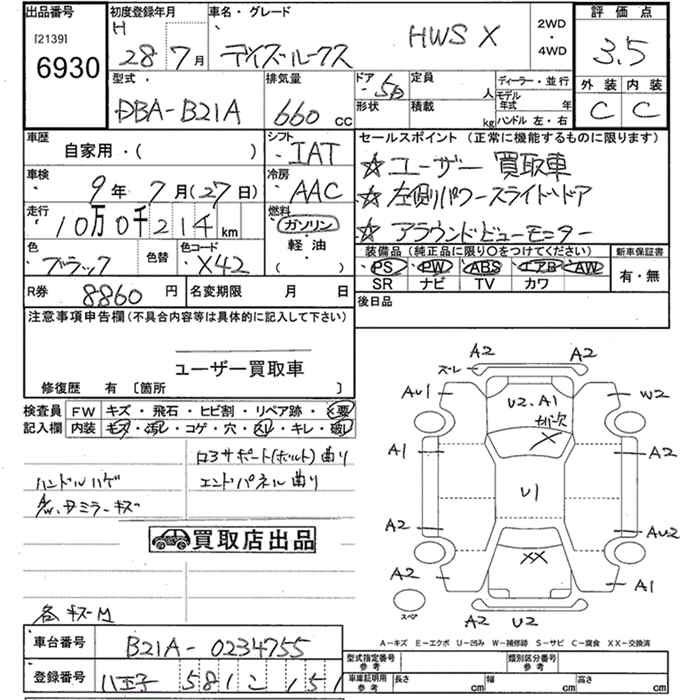 出品番号
[2139]
6930
初度登録年月
H
28年7月
車名・グレード
デイズルークス HWS X
2WD
・
4WD
評価点
3.5
外装 内装
C C
型式・
DBA-B21A
排気量
660 cc
ドア・ 5D
形状
定員 人
積載 kg
ディーラー・並行
モデル年式 年
ハンドル 左・右
車歴
自家用・( )
シフト IAT
車検
9年7月(27日)
冷房 AAC
走行
10万0千214km
燃料
ガソリン
・
軽油
( )
色 ブラック 色替 色コード X42
R券 8860円 名変期限 月 日
セールスポイント (正常に機能するものに限ります)
☆ユーザー買取車
☆左側パワースライドドア
☆アラウンドビューモニター
装備品 (純正品に限り○をつけてください)
PS PW ABS エアB AW
SR ナビ TV カワ
新車保証書
有・無
後日品
注意事項申告欄 (不具合内容等は具体的に記入して下さい)
ユーザー買取車
修復歴 有 [箇所 ]
検査員
記入欄
FW キズ・飛石・ヒビ割・リペア跡・X要
内装 キズ・汚レ・コゲ・穴・スレ・キレ・破レ
ロアサポート(ボルト)曲り
ハンドルハゲ エンドパネル曲り
A/W、ミラーキズ
買取店出品
各キズM
車台番号 B21A-0234755
登録番号 八王子 581 こ 151
A2 A2
ズーレ
AU1 U2.A1 W2
A1 A2
X
U1
A2 AU2
XX
A2 A1
スペア
A2 U2
A-キズ E-エクボ U-凹み W-補修跡 S-サビ C-腐食 XX-交換済
型式指定番号 参考 類別区分番号 参考
車庫証明用 参考 長さ cm 幅 cm 高さ cm